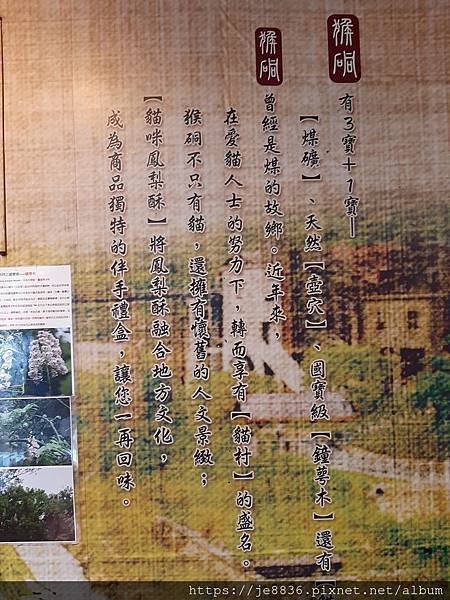 猴硐
有3寶+1寶—
【煤礦】、天然【壺穴】、國寶級【鐘萼木】還有【
猴硐
曾經是煤的故鄉。近年來，
在愛貓人士的努力下，轉而享有【貓村】的盛名。
猴硐不只有貓，還擁有懷舊的人文景緻；
【貓咪鳳梨酥】將鳳梨酥融合地方文化，
成為商品獨特的伴手禮盒，讓您一再回味。
https://je8836.pixnet.net/album